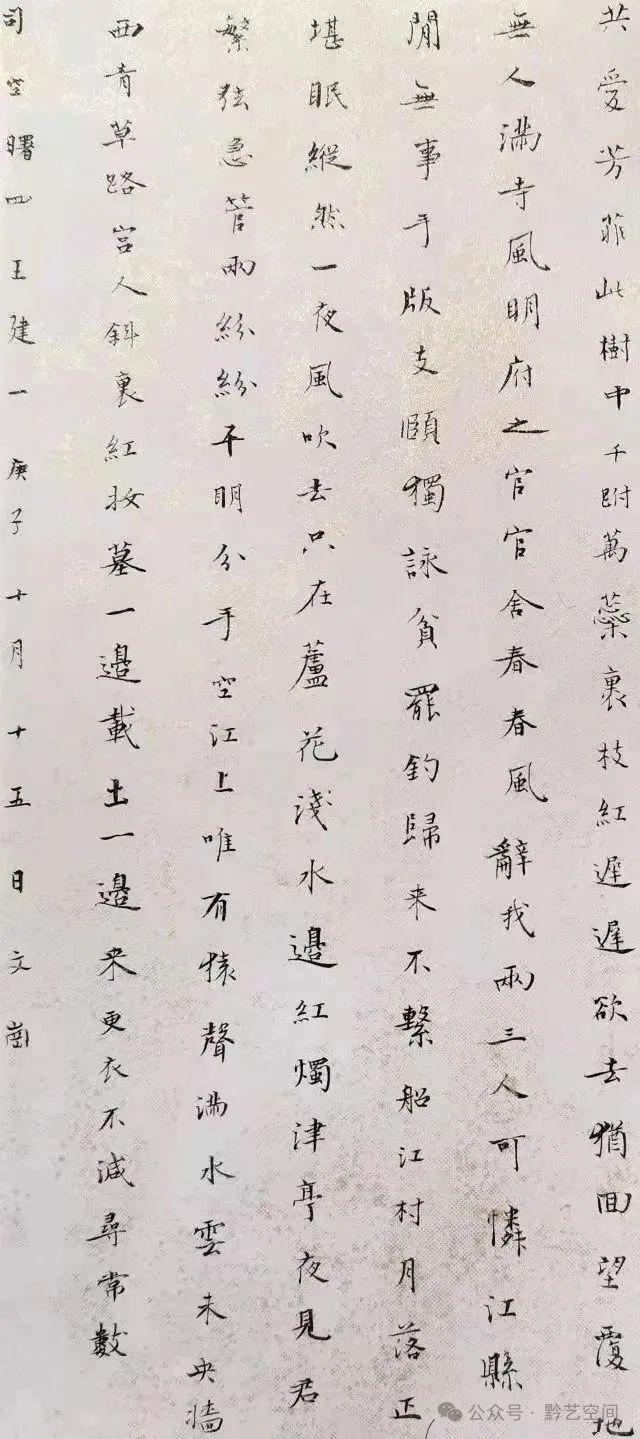 共愛芳菲此樹中千跗萬蘂裏枝紅遲遲欲去猶回望覆地
無人滿寺風明府之官官舍春春風辭我兩三人可憐江縣
閒無事手版支頤獨詠貧罷釣歸来不繫船江村月落正
堪眠縱然一夜風吹去只在蘆花淺水邊紅燭津亭夜見君
繁弦急管兩紛紛平明分手空江上唯有猿聲滿水雲未央牆
西青草路宮人斜裏紅妝墓一邊載土一邊来更衣不減尋常數
司空曙四王建一庚子十月十五日文崗
公众号·黔艺空间